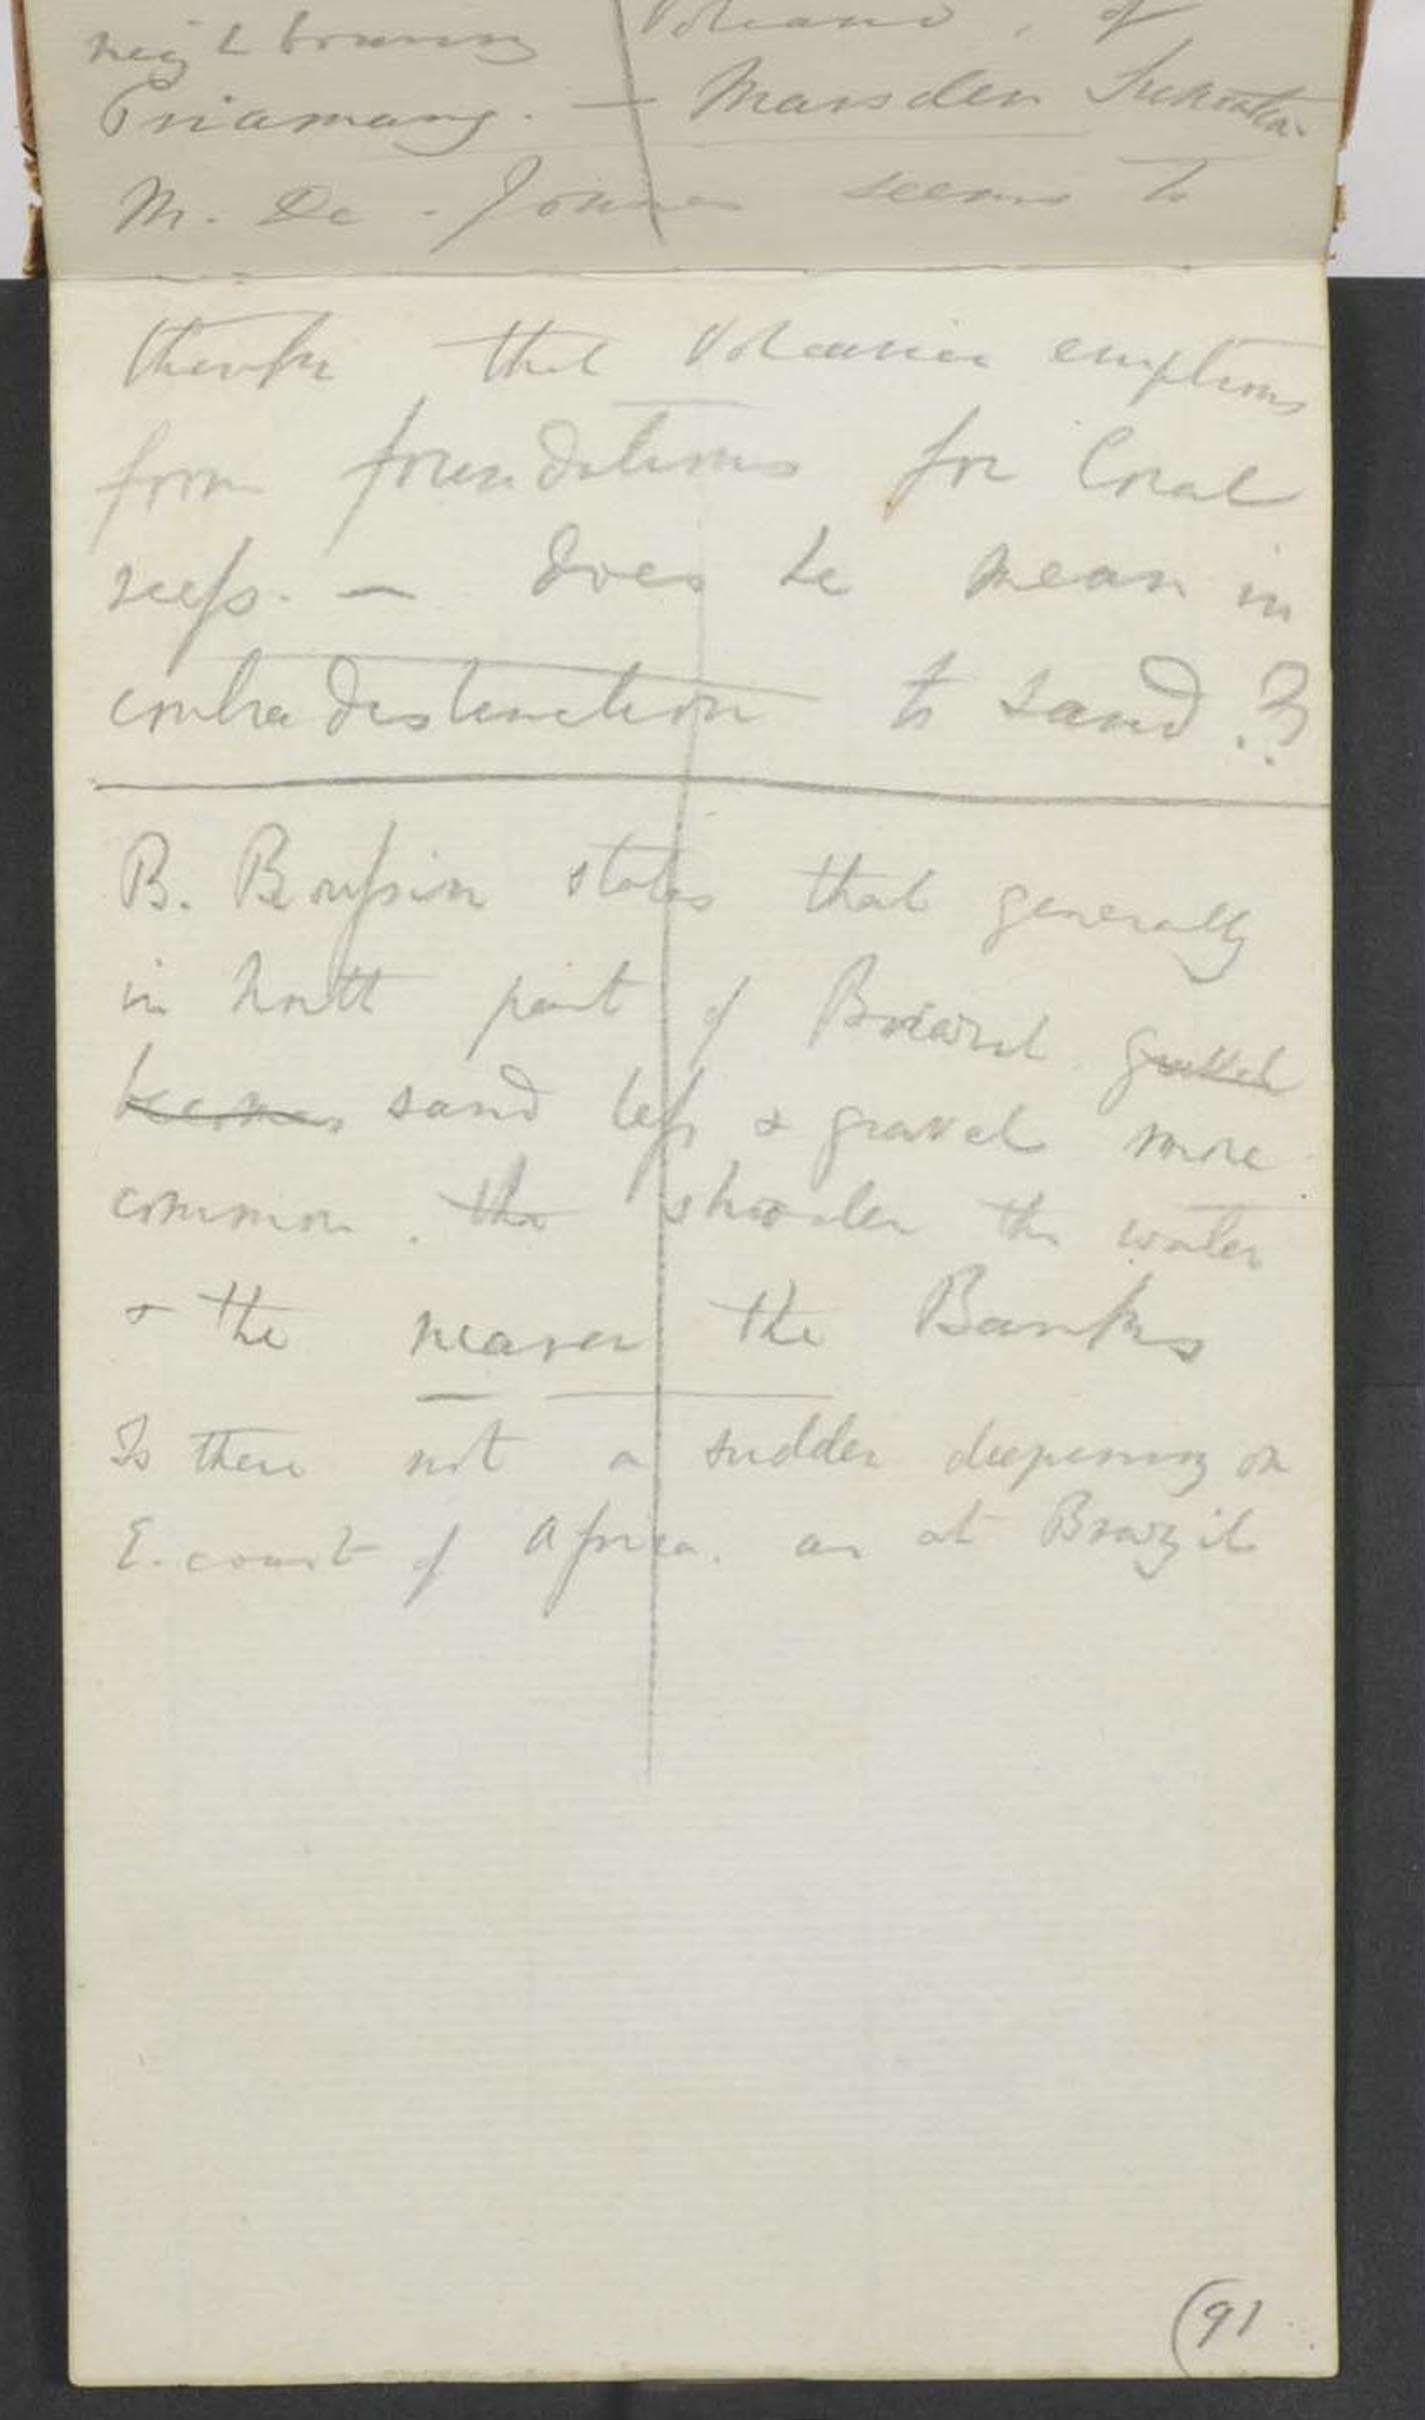 neighbouring Volcano, of
Priamang. — Marsden Sumatra.
M. De. Jonnes seems to
think that Volcanic eruptions
form foundations for Coral
reefs. — does he mean in
contradistinction to sand??
B. Roussin states that generally
in North part of Brazil gravel
becomes sand less & gravel more
common. the shoaler the water
& the nearer the Banks
Is there not a sudden deepening on
E. coast of Africa. as at Brazil
(91